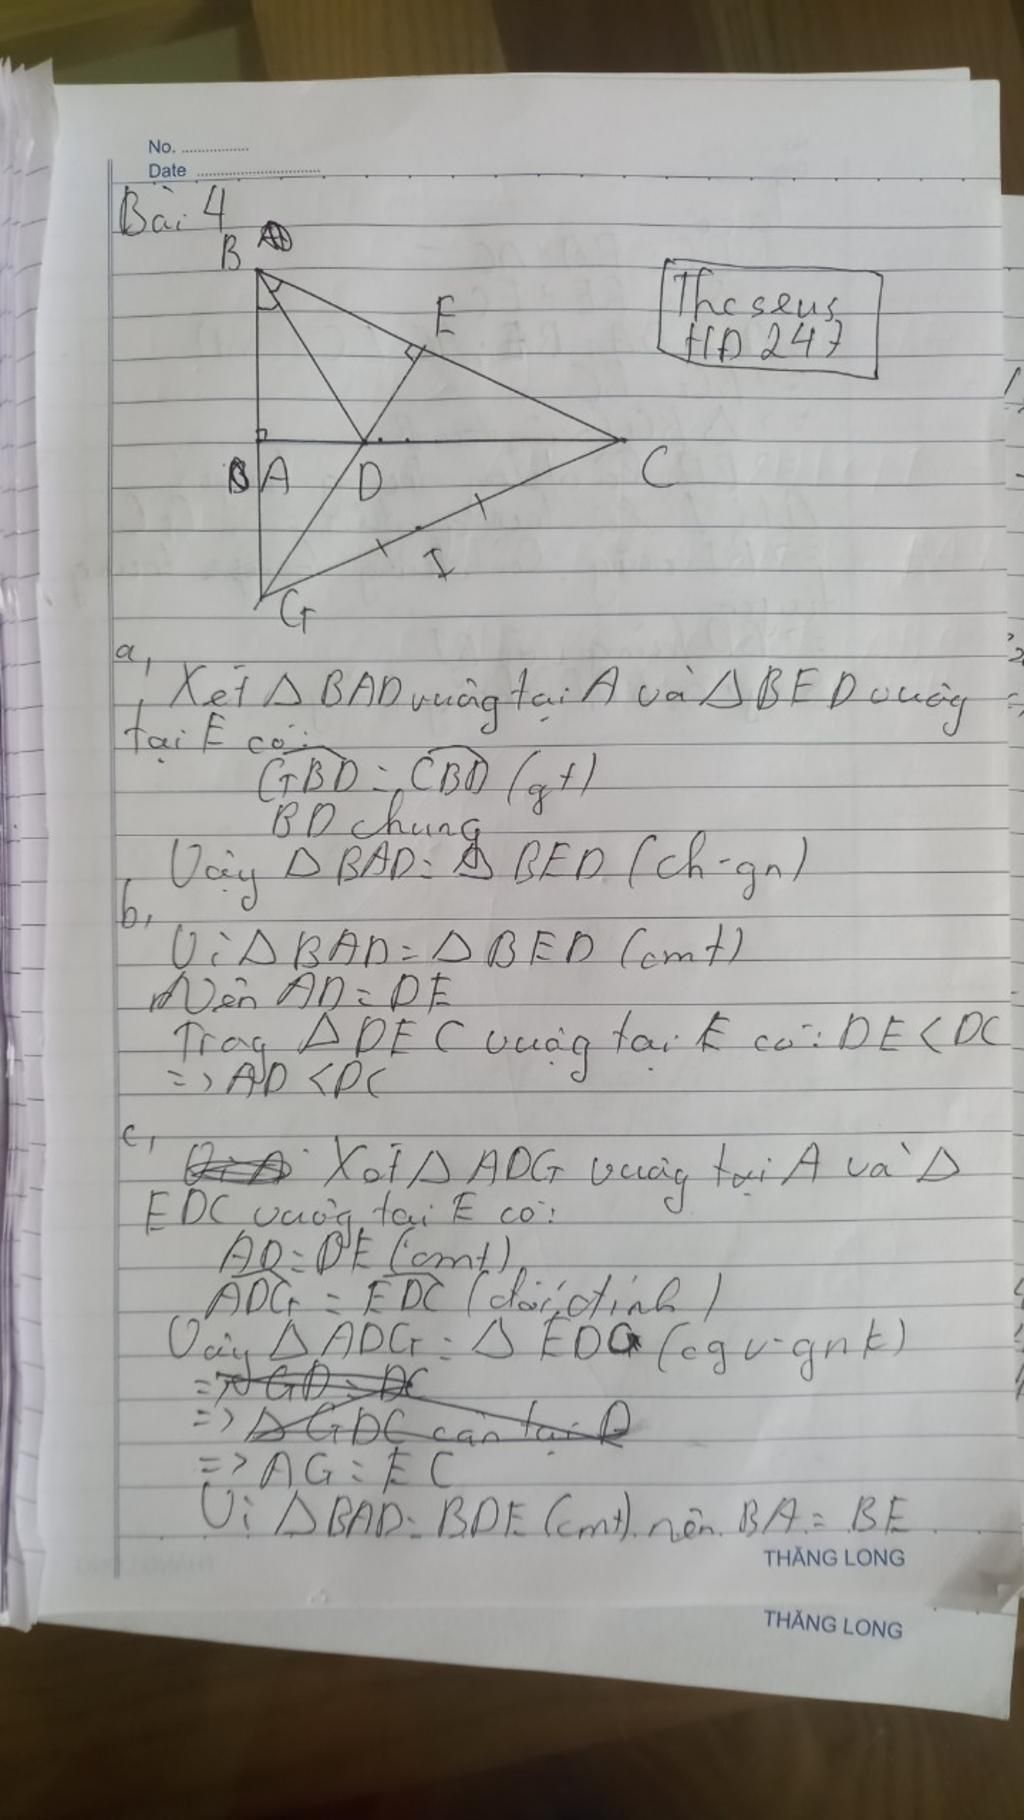 No.
Date
Bài 4
B
E
Theseus
HD 247
A D C
I
G
a,
Xét Δ BAD vuông tại A và Δ BED vuông
tại E có:
GBD = CBD (gt)
BD chung
Vậy Δ BAD = Δ BED (ch-gn)
b,
Vì Δ BAD = Δ BED (cmt)
Nên AD = DE
Trong Δ DEC vuông tại E có: DE < DC
=> AD < DC
c,
Xét Δ ADG vuông tại A và Δ
EDC vuông tại E có:
AD = DE (cmt)
ADG = EDC (đối đỉnh)
Vậy Δ ADG = Δ EDC (cgv-gnk)
=> GD = DC
=> Δ GDC cân tại D
=> AG = EC
Vì Δ BAD = BDE (cmt) nên BA = BE
THĂNG LONG
THĂNG LONG